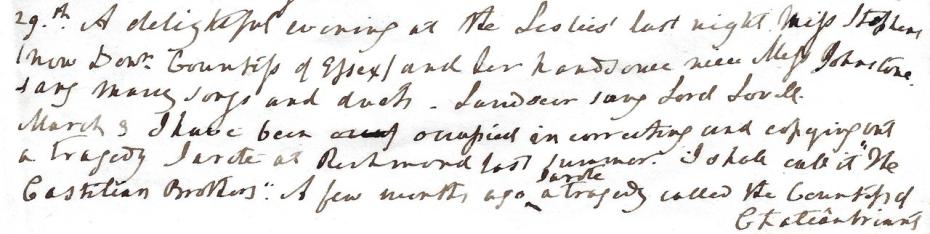 29.th A delightful evening at the Leslies' last night Miss Stephens
(now Dowr. Countess of Essex) and her handsome niece Miss Johnstone.
sang many songs and duets - Landseer sang Lord Lovell.
March 3 I have been occupied in correcting and copying out
a tragedy I wrote at Richmond last summer. I shall call it "The
Castilian Brothers": A few months ago I wrote a tragedy called the Countess of
Chateaubriant